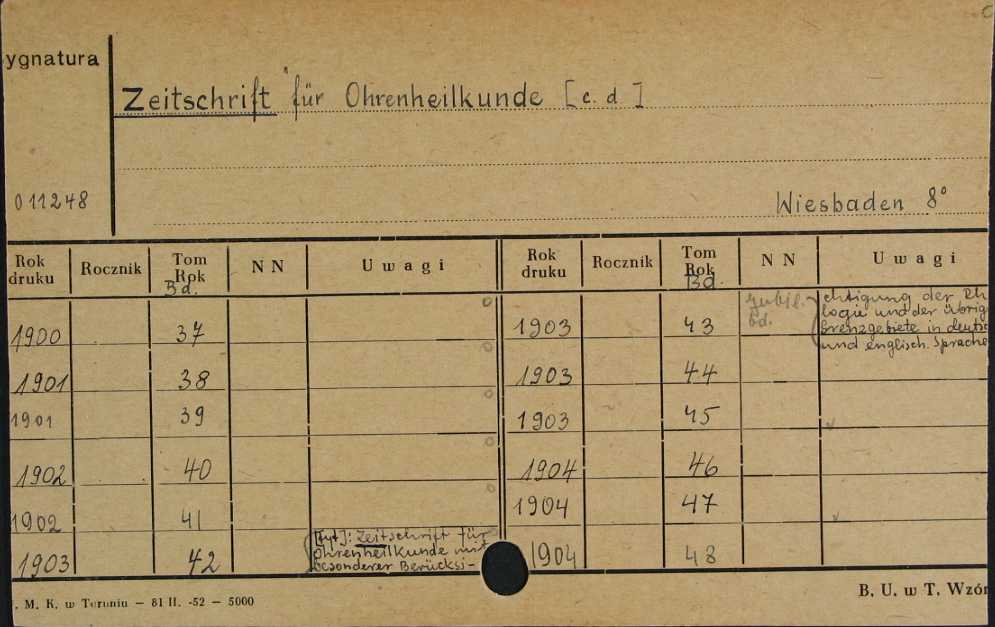 ygnatura
Zeitschrift für Ohrenheilkunde [c. d.]
011248
Wiesbaden 8°
Rok druku Rocznik Tom Rok Bd. N N Uwagi Rok druku Rocznik Tom Rok Bd. N N Uwagi
1900 37 1903 43 Jubil. bd. chtigung der Rh
logie und der übrig
Grenzgebiete in deuts
und englisch. Sprache
1901 38 1903 44
1901 39 1903 45
1902 40 1904 46
1902 41 1904 47
1903 42 [Tyt]: Zeitschrift für 1904 48
Ohrenheilkunde mit
besonderer Berücksi-
. M. K. w Toruniu — 81 II. -52 — 5000
B. U. w T. Wzór